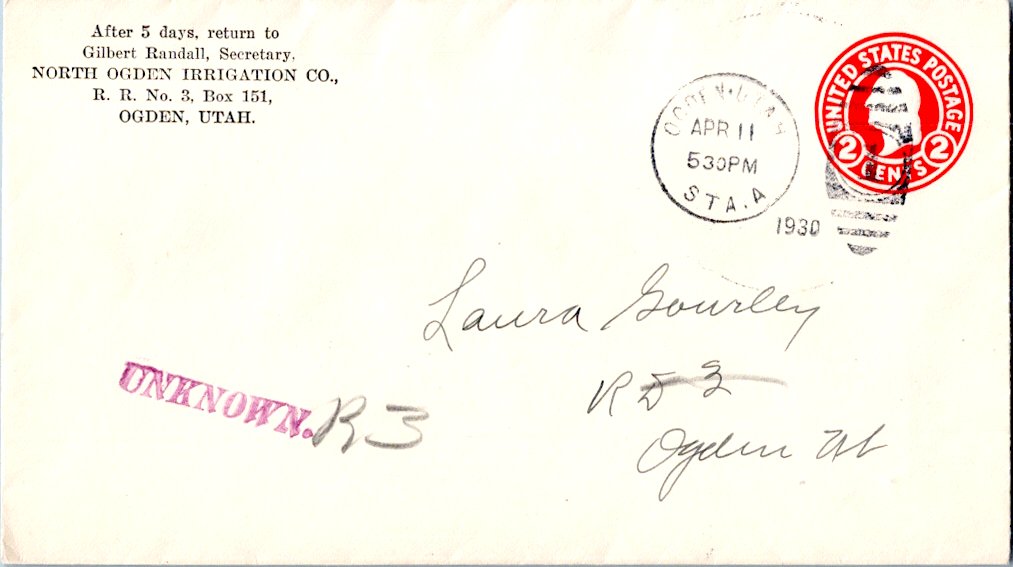 After 5 days, return to
Gilbert Randall, Secretary,
NORTH OGDEN IRRIGATION CO.,
R. R. No. 3, Box 151,
OGDEN, UTAH.
OGDEN, UTAH
APR 11
530PM
STA. A
1930
UNITED STATES POSTAGE
2 CENTS 2
Laura Gourley
R D 3
Ogden Ut
UNKNOWN. R 3